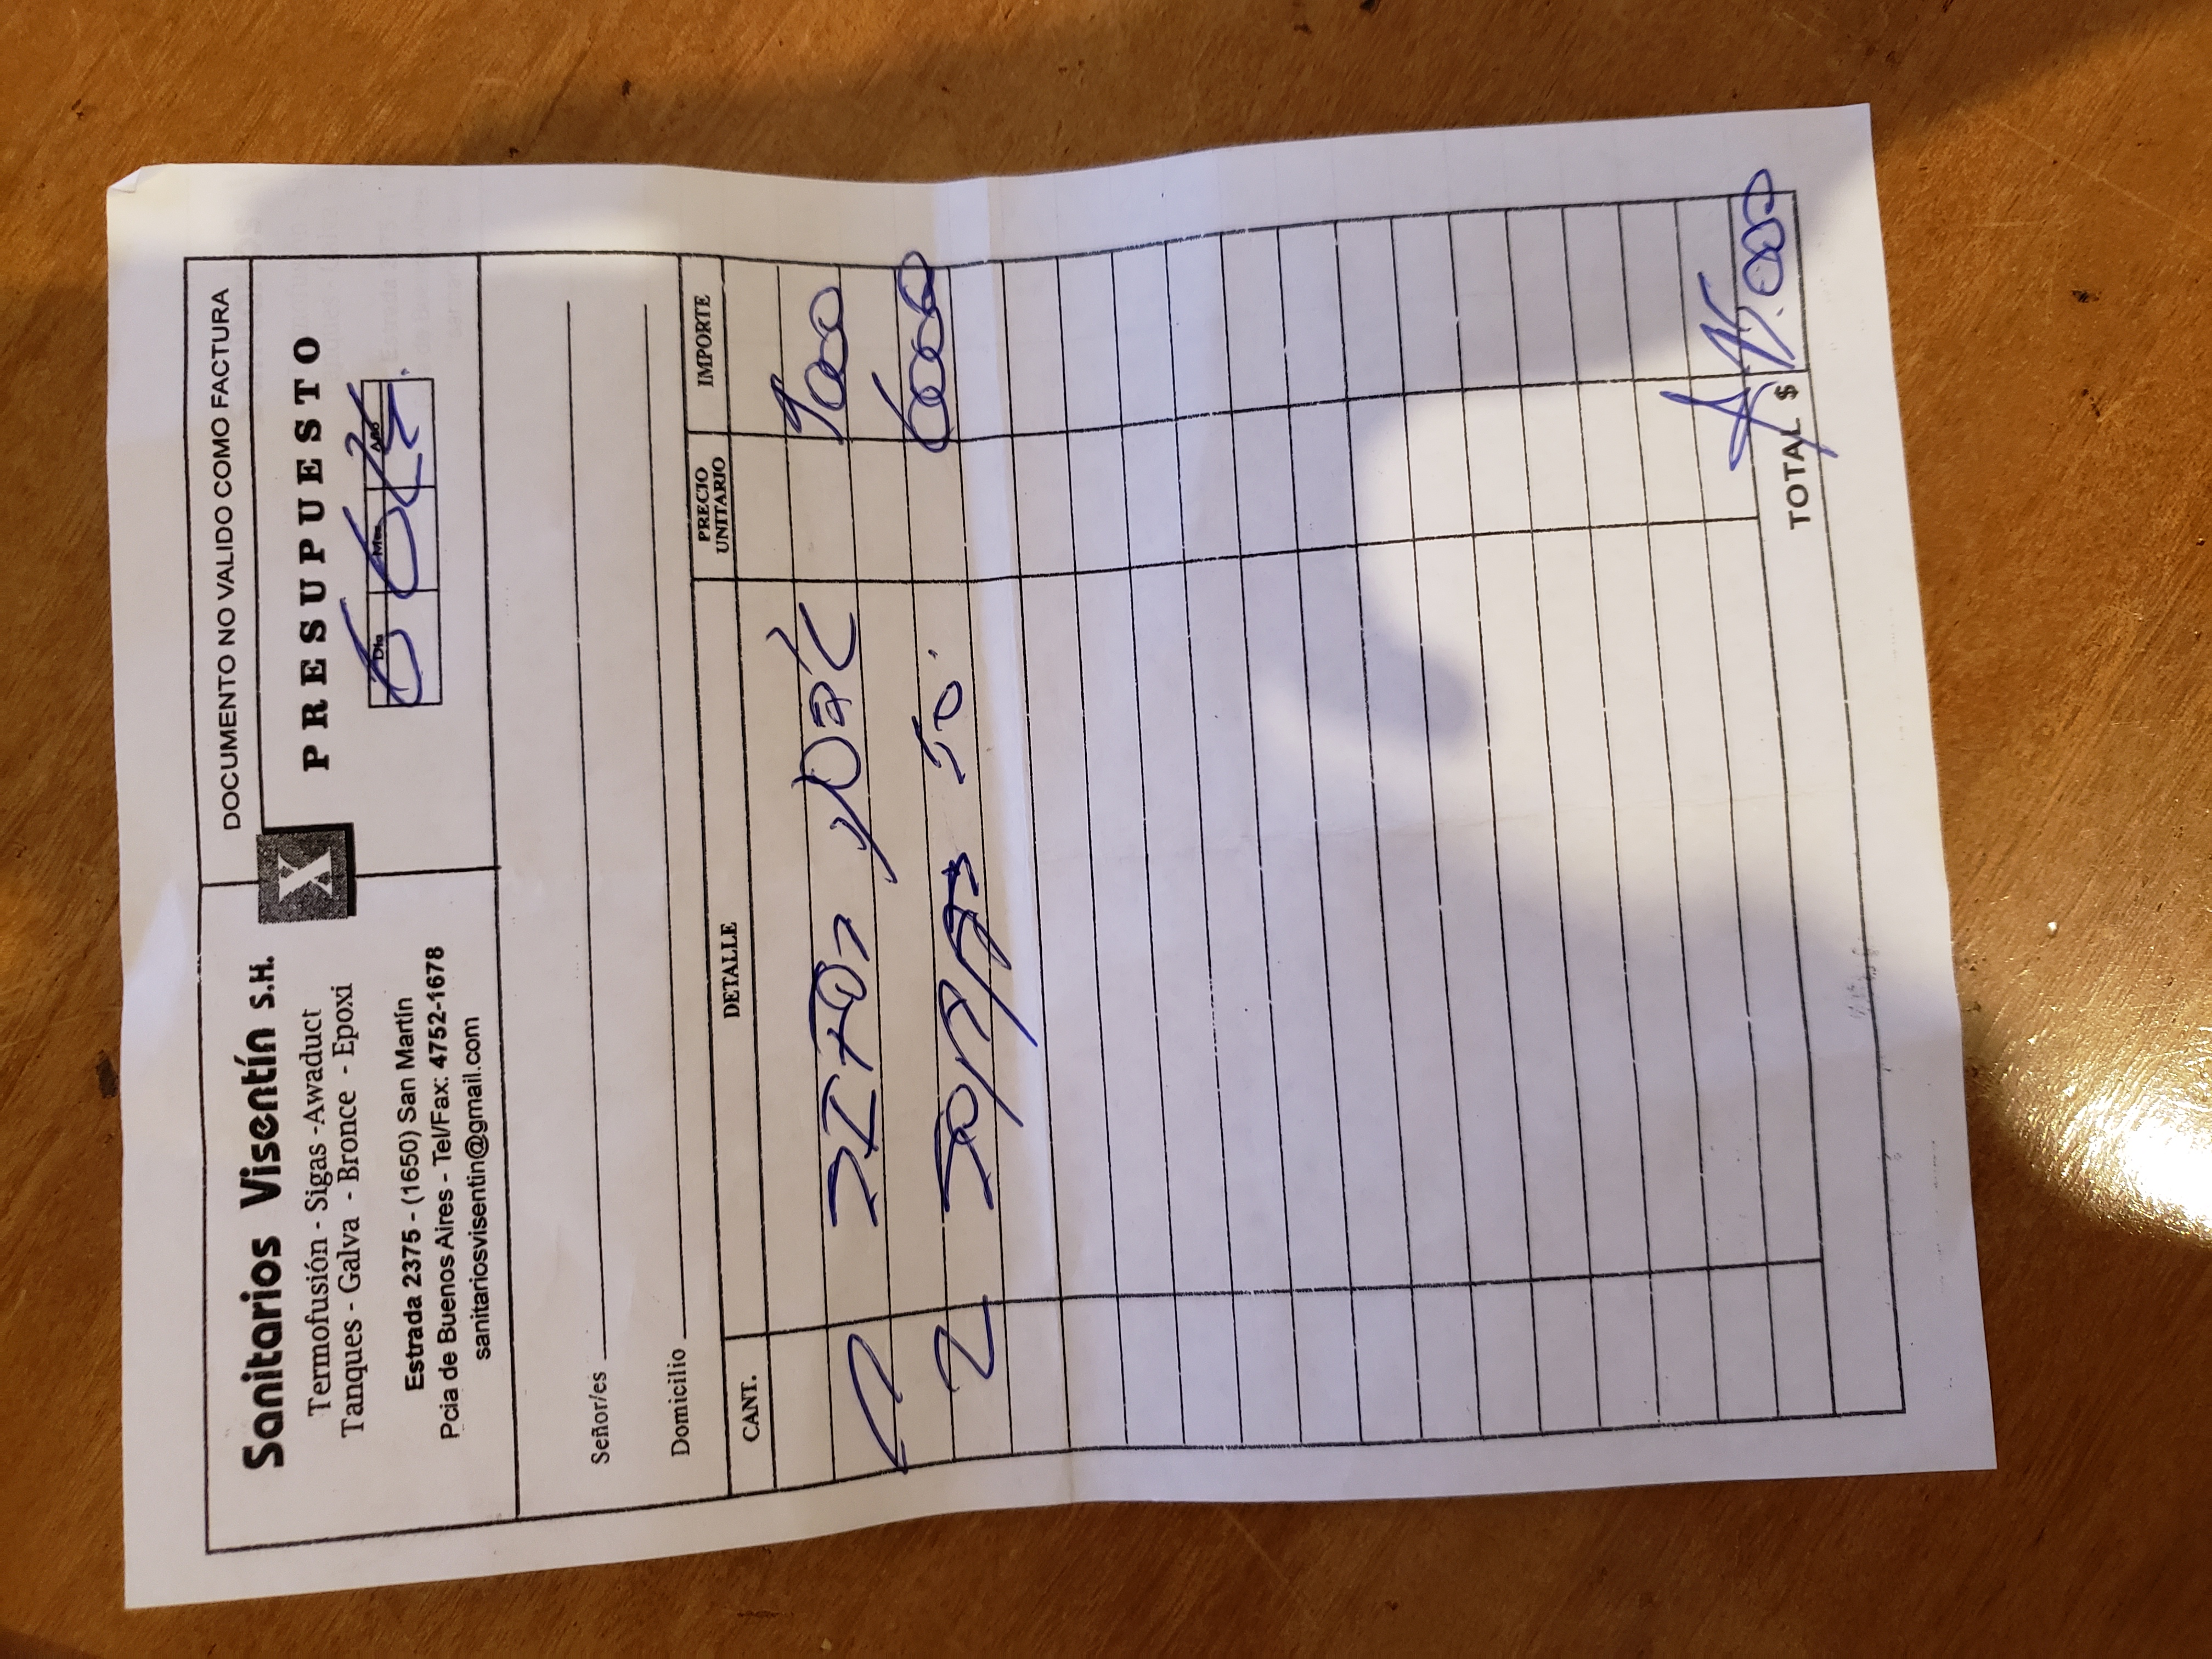 Sanitarios Visentín S.H.
Termofusión - Sigas -Awaduct
Tanques - Galva - Bronce - Epoxi
Estrada 2375 - (1650) San Martín
Pcia de Buenos Aires - Tel/Fax: 4752-1678
sanitariosvisentin@gmail.com
X
DOCUMENTO NO VALIDO COMO FACTURA
PRESUPUESTO
Día Mes Año
6 6
Señor/es
Domicilio
CANT. DETALLE PRECIO UNITARIO IMPORTE
9000
2 50 6000
TOTAL $ 15.000